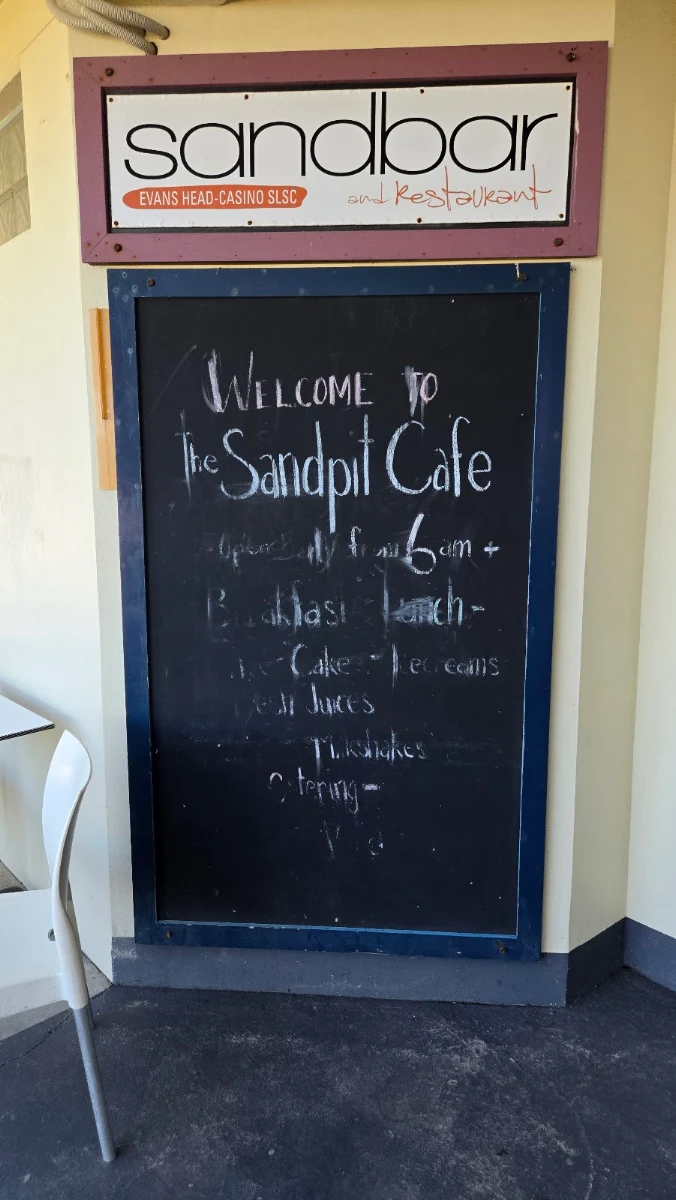 sandbar
EVANS HEAD-CASINO SLSC
and Restaurant
WELCOME TO
The Sandpit Cafe
Open Daily from 6am +
Breakfast - Lunch -
Cakes - Icecreams
Fresh Juices
Milkshakes
Catering -